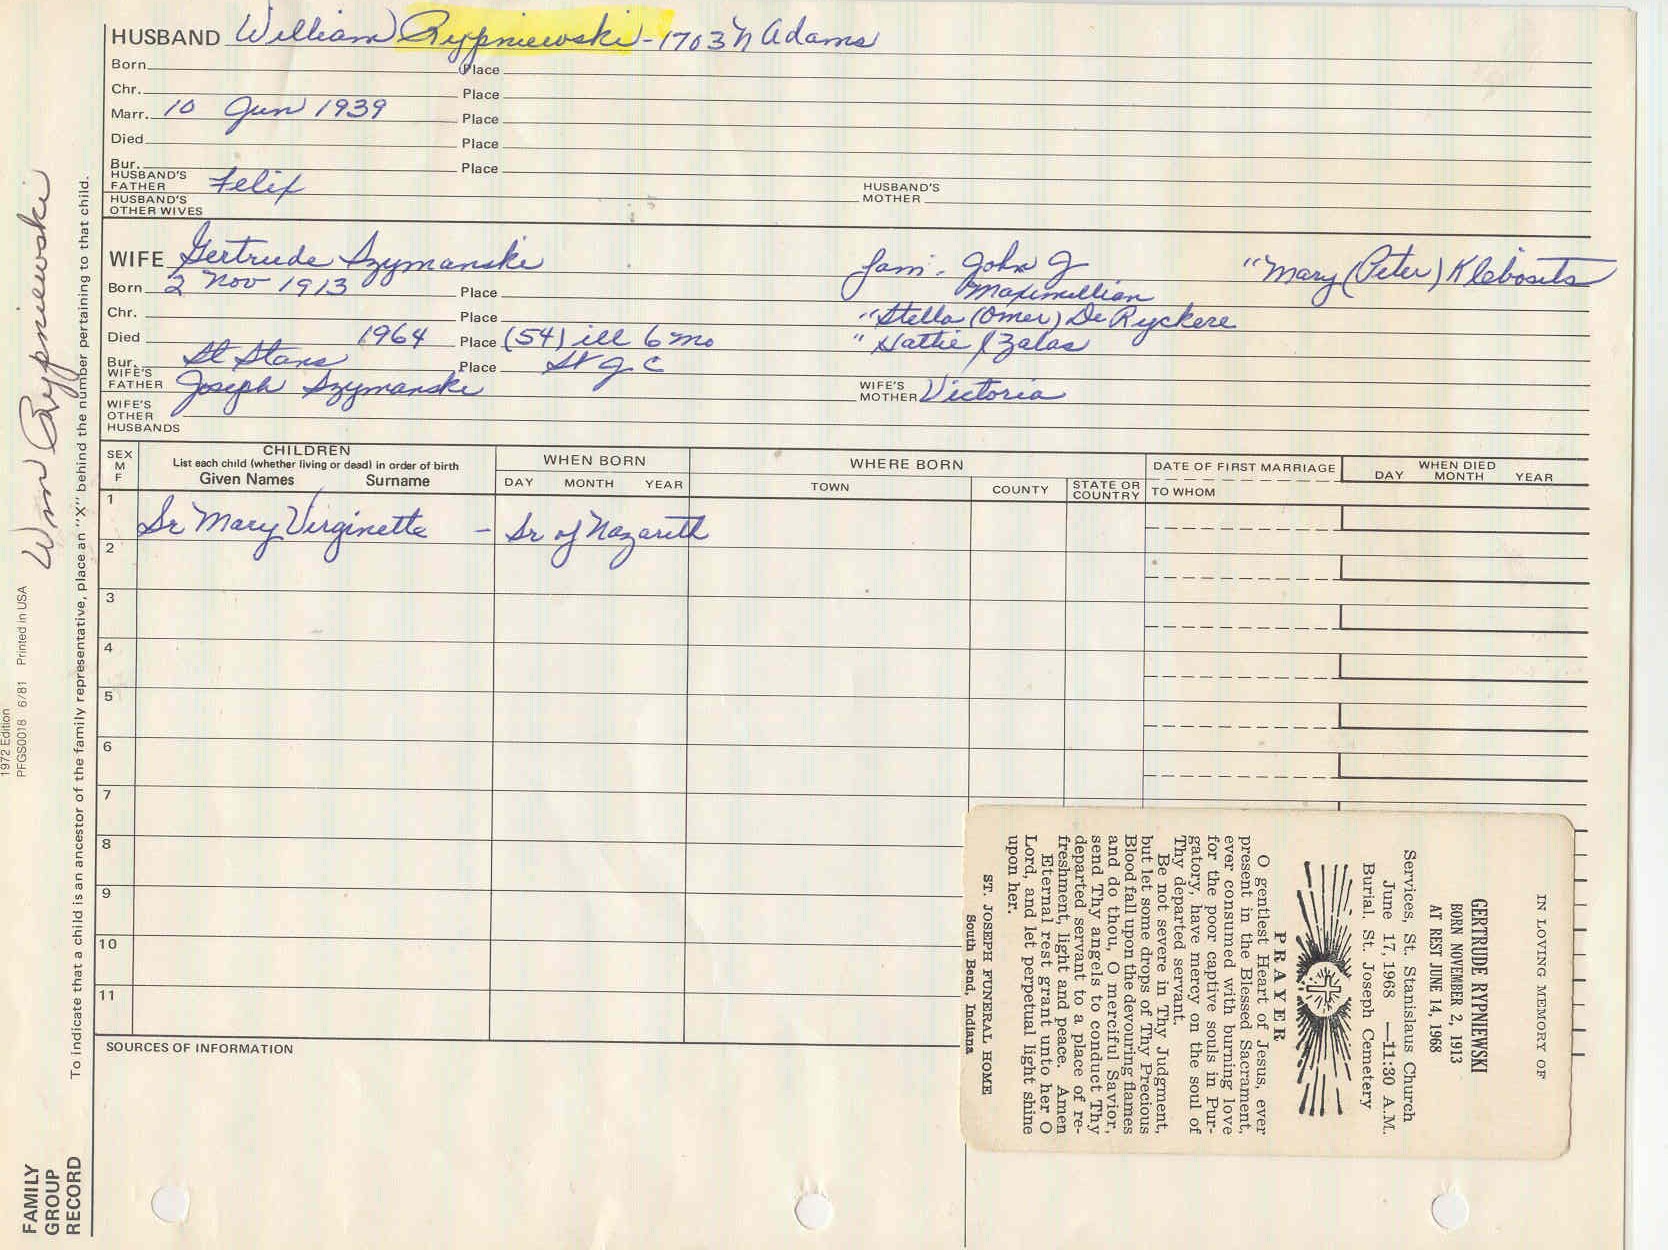 HUSBAND William Rypniewski - 1703 N Adams
Born Place
Chr. Place
Marr. 10 Jun 1939 Place
Died Place
Bur. Place
HUSBAND'S FATHER Felix HUSBAND'S MOTHER
HUSBAND'S OTHER WIVES
WIFE Gertrude Szymanski fam. John J "Mary (Peter) Klebosits
Born 2 Nov 1913 Place Maximillian
Chr. Place "Stella (Omer) De Ryckere
Died 1964 Place (54) ill 6 mo " Hattie / Zalas
Bur. St Stans Place St J C
WIFE'S FATHER Joseph Szymanski WIFE'S MOTHER Victoria
WIFE'S OTHER HUSBANDS
SEX M F
CHILDREN
List each child (whether living or dead) in order of birth
Given Names Surname
WHEN BORN
DAY MONTH YEAR
WHERE BORN
TOWN COUNTY STATE OR COUNTRY
DATE OF FIRST MARRIAGE
TO WHOM
WHEN DIED
DAY MONTH YEAR
1 Sr Mary Virginette - Sr of Nazareth
2
3
4
5
6
7
8
9
10
11
SOURCES OF INFORMATION
Wm Rypniewski
To indicate that a child is an ancestor of the family representative, place an "X" behind the number pertaining to that child.
1972 Edition
PFGS0018 6/81 Printed in USA
FAMILY
GROUP
RECORD
IN LOVING MEMORY OF
GERTRUDE RYPNIEWSKI
BORN NOVEMBER 2, 1913
AT REST JUNE 14, 1968
Services, St. Stanislaus Church
June 17, 1968 —11:30 A.M.
Burial, St. Joseph Cemetery
PRAYER
O gentlest Heart of Jesus, ever
present in the Blessed Sacrament,
ever consumed with burning love
for the poor captive souls in Pur-
gatory, have mercy on the soul of
Thy departed servant.
Be not severe in Thy Judgment,
but let some drops of Thy Precious
Blood fall upon the devouring flames
and do thou, O merciful Savior,
send Thy angels to conduct Thy
departed servant to a place of re-
freshment, light and peace. Amen
Eternal rest grant unto her O
Lord, and let perpetual light shine
upon her.
ST. JOSEPH FUNERAL HOME
South Bend, Indiana